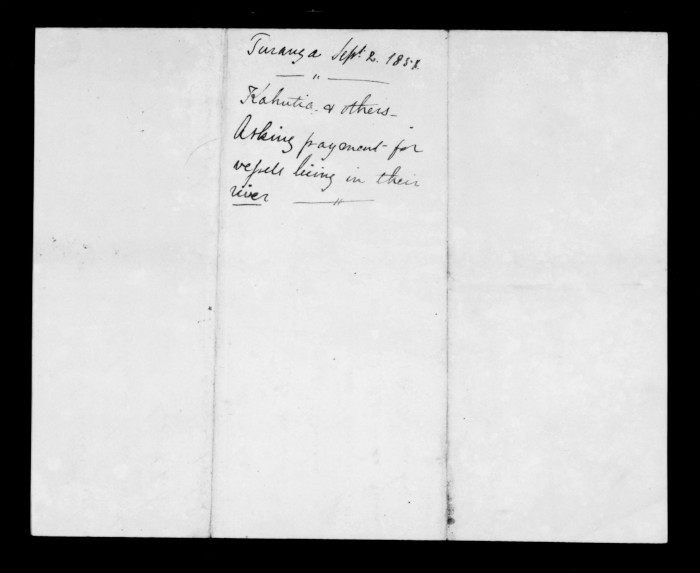 Turanga Sept. 2. 1858
Kahutia & others -
Asking payment for
vessels lieing in their
river